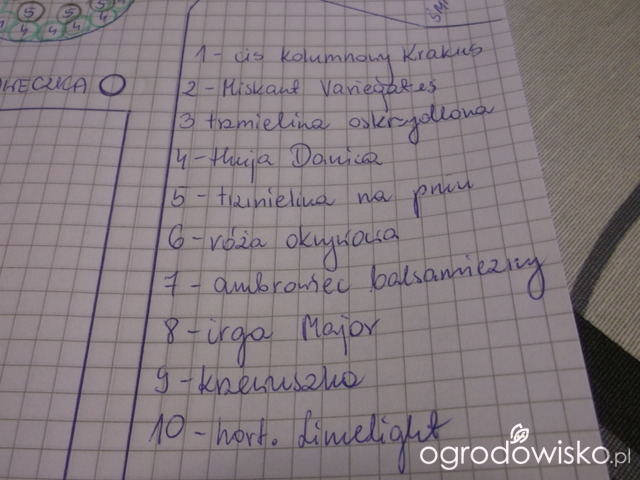 5 5 5
4 4 4 4
1 - cis kolumnowy Krakus
2 - Miskant Variegates
3 trzmielina oskrzydlona
4 - thuja Danica
5 - trzmielina na pniu
6 - róża okrywowa
7 - ambrowiec balsamiczny
8 - irga Major
9 - krzewuszka
10 - hort. Limelight
ogrodowisko.pl